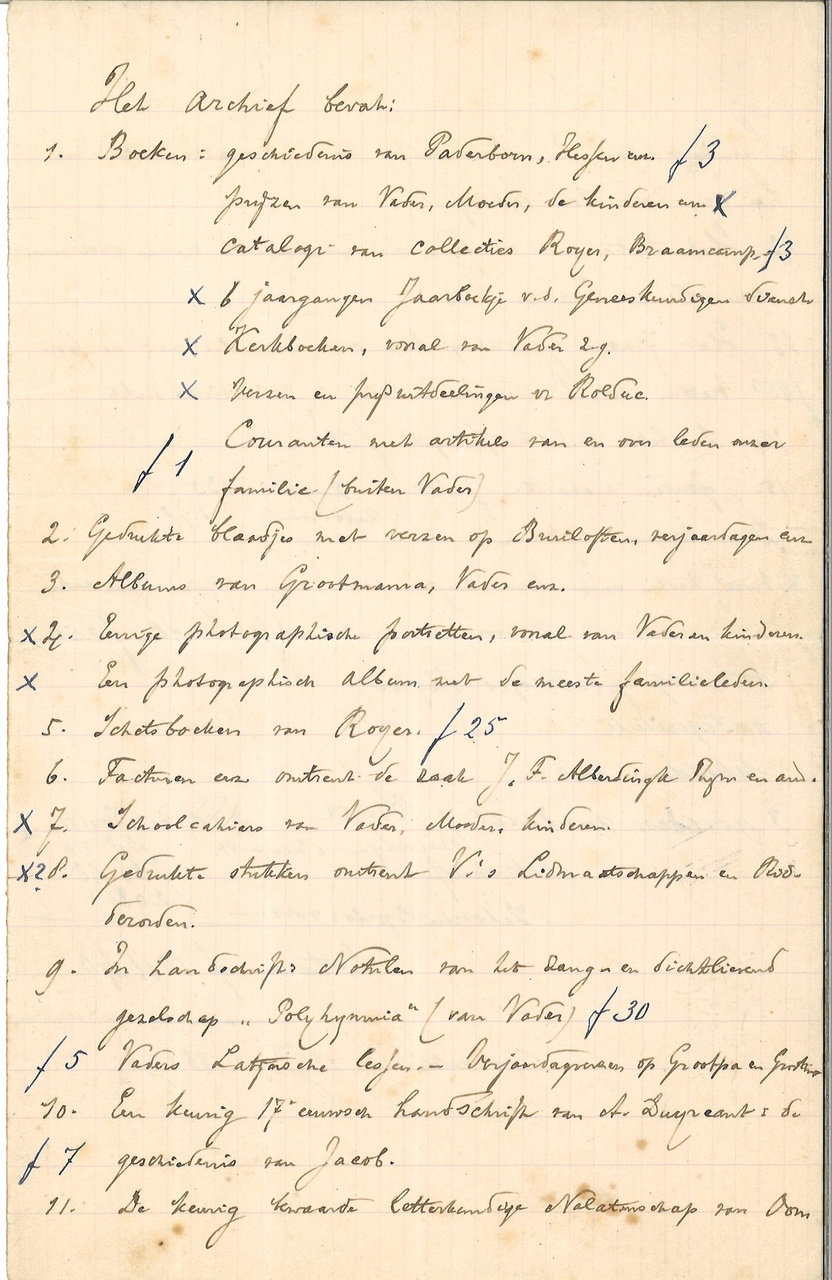 Het Archief bevat:
1. Boeken: geschiedenis van Paderborn, Hessen enz. f 3
prijzen van Vader, Moeder, de kinderen enz X
Catalogi van collecties Royer, Braamcamp, f 3
X 6 jaargangen Jaarboekje v.d. Geneeskundigen dienst
X Kerkboeken, vooral van Vader zg.
X Verzen en prijsuitdeelingen v. Rolduc.
Couranten met artikels van en over leden onzer
f 1
familie (buiten Vader)
2. Gedrukte blaadjes met verzen op Bruiloften, verjaardagen enz
3. Albums van Grootmama, Vader enz.
X 4. Eenige photographische portretten, vooral van Vader en kinderen.
X Een photographisch album met de meeste familieleden.
5. Schetsboeken van Royer. f 25
6. Facturen enz omtrent de zaak J. F. Alberdingk Thijm en and.
X 7. Schoolcahiers van Vader, Moeder, kinderen.
X? 8. Gedrukte stukken omtrent V.'s Lidmaatschappen en Rid-
derorden.
9. In handschrift: Notulen van het zang- en dichtlievend
gezelschap „Polyhymnia" (van Vader) f 30
f 5 Vaders Latijnsche lessen. — Verjaardagverzen op Grootpa en Grootma
10. Een keurig 17e eeuwsch handschrift van A. : de
f 7 geschiedenis van Jacob.
11. De keurig bewaarde letterkundige Nalatenschap van Oom